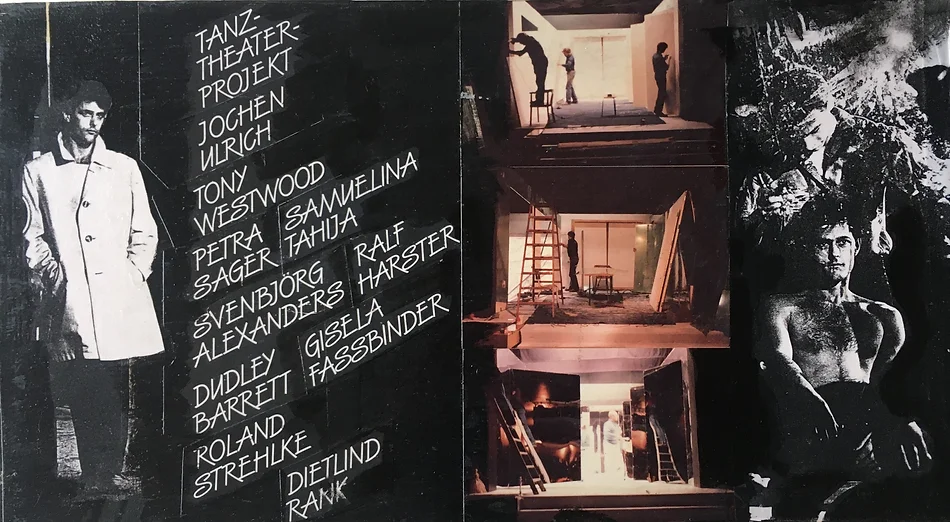 TANZ-
THEATER-
PROJEKT
JOCHEN
ULRICH
TONY
WESTWOOD
PETRA
SAGER
SAMUELINA
TAHIJA
SVENBJÖRG
ALEXANDERS
RALF
HARSTER
DUDLEY
BARRETT
GISELA
FASSBINDER
ROLAND
STREHLKE
DIETLIND
RANK